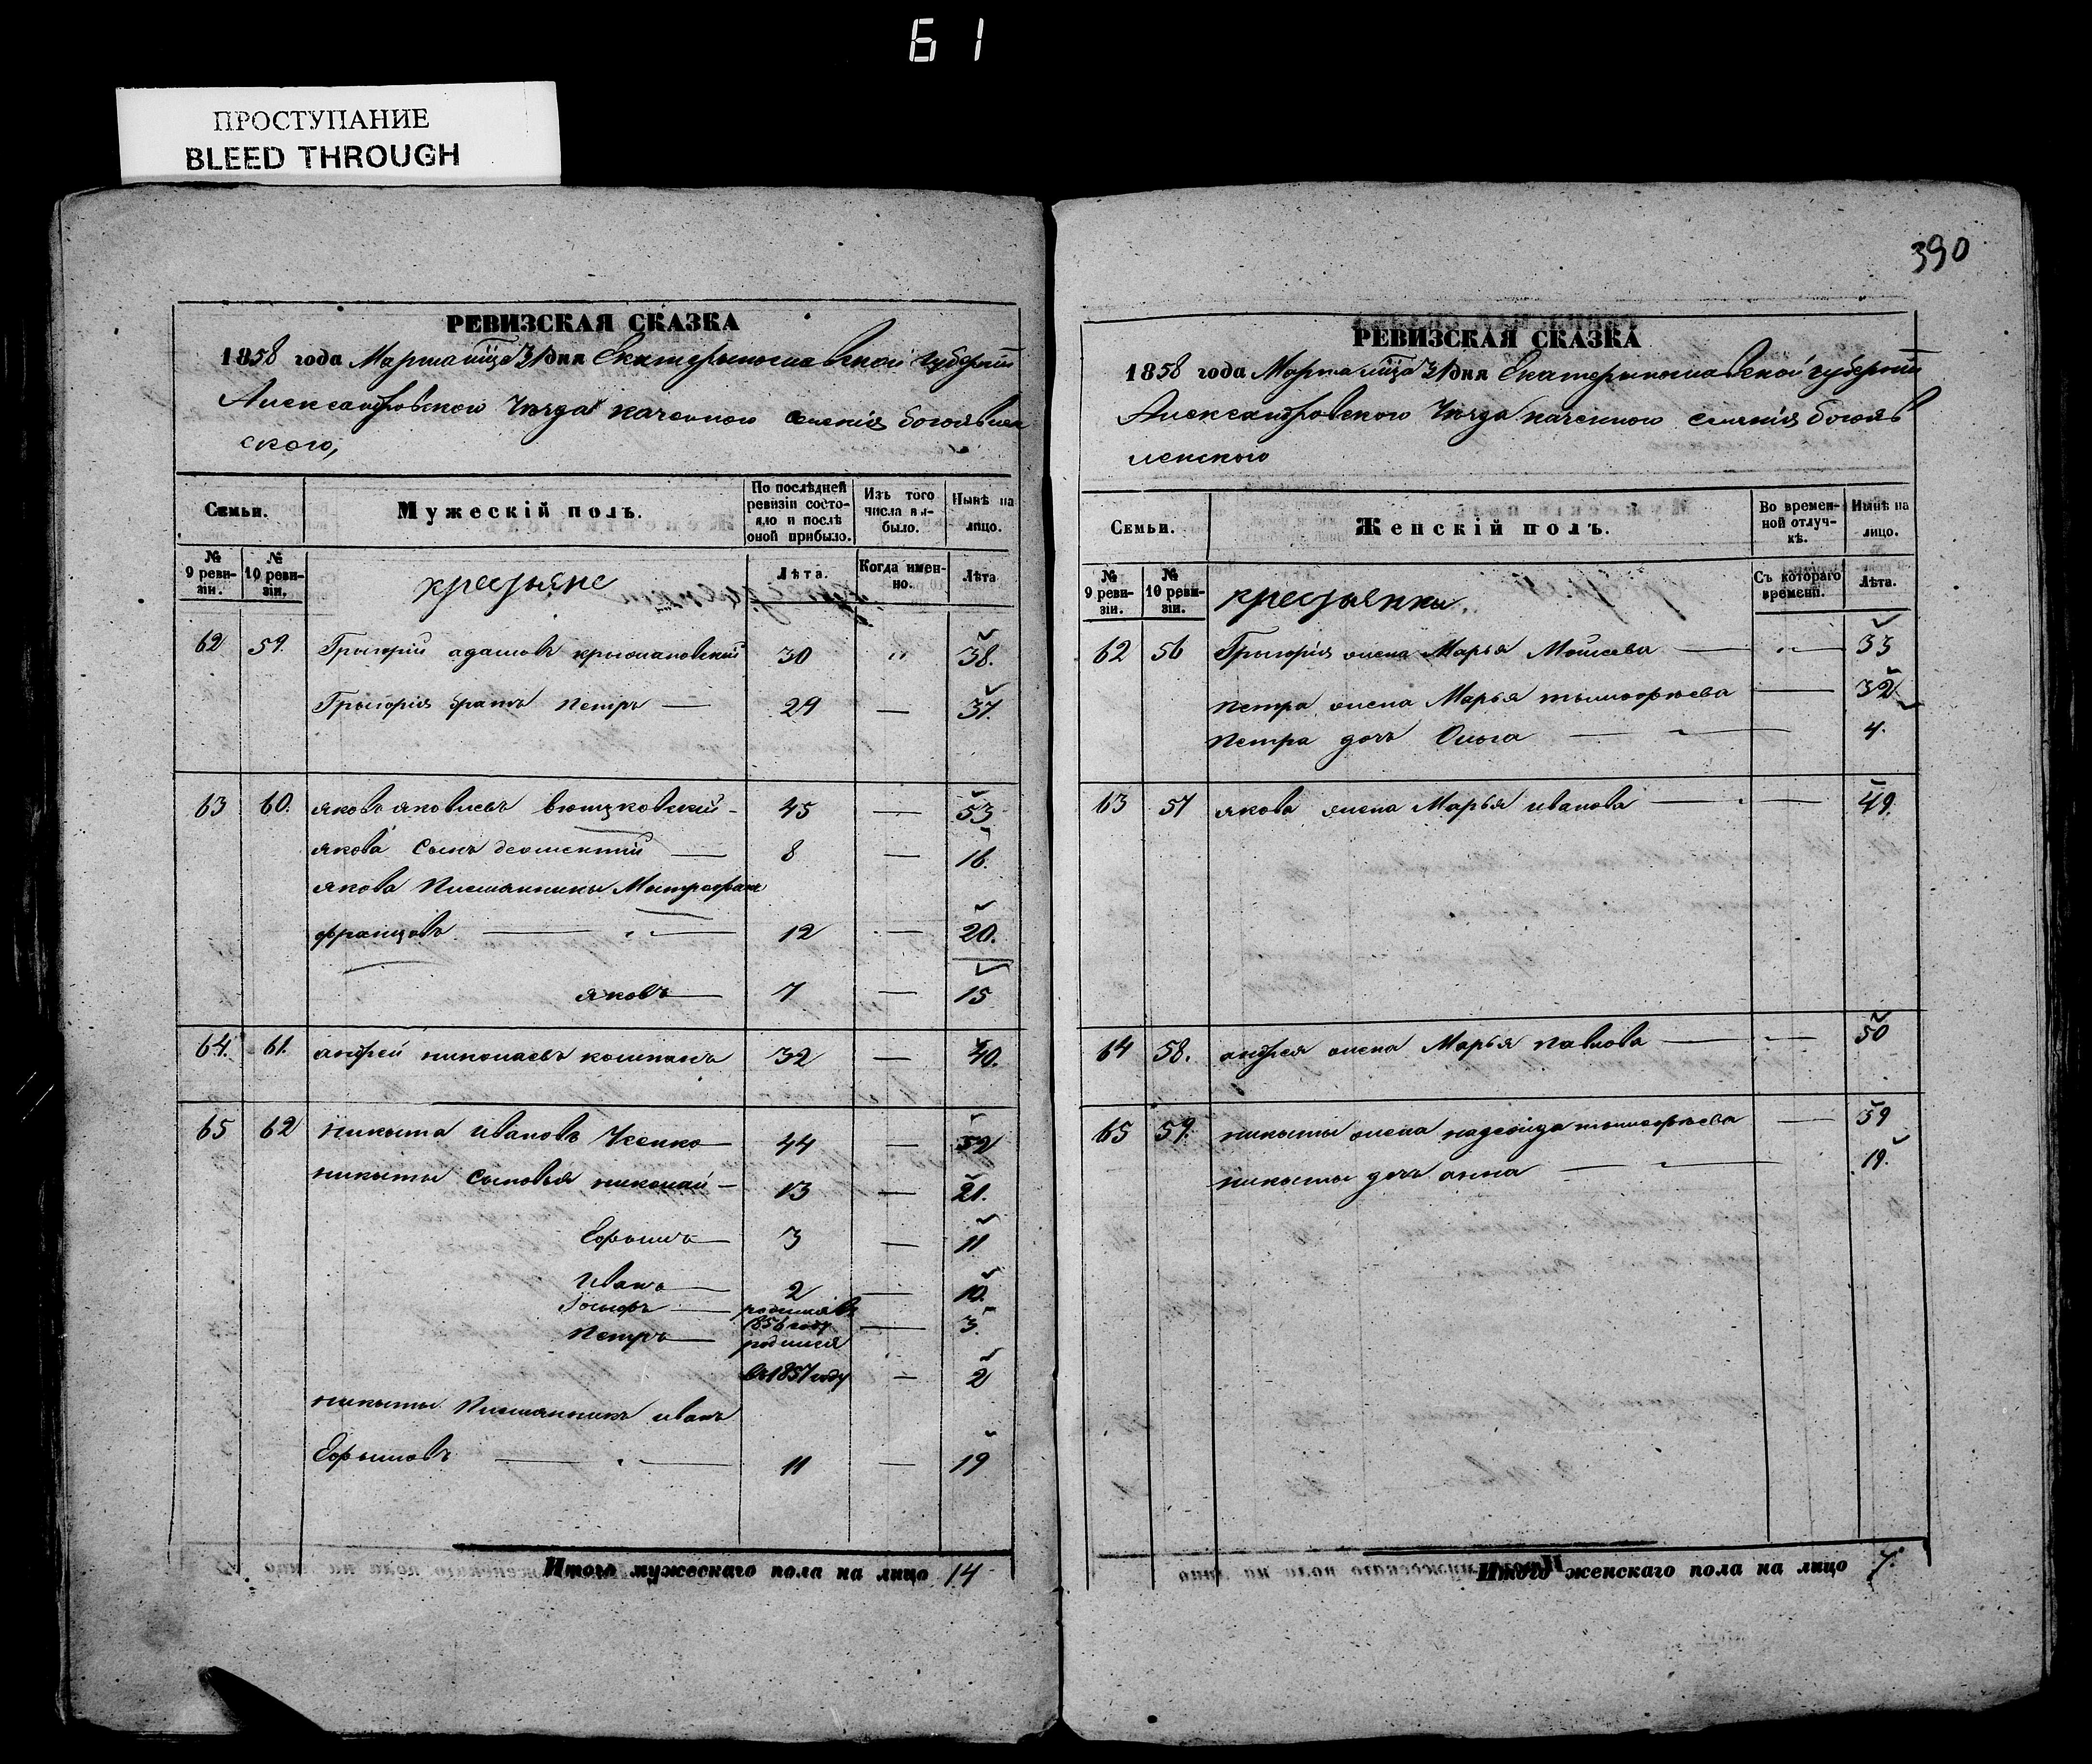 61
ПРОСТУПАНИЕ
BLEED THROUGH
РЕВИЗСКАЯ СКАЗКА
1858 года Марта мца 31 дня Екатерынославской губернии
Александровского Уезда казенного селения Богоявлен
ского,
Семьи.
Мужескій полъ.
По послѣдней ревизіи состояло и послѣ оной прибыло.
Изъ того числа выбыло.
Нынѣ на лицо.
№ 9 ревизіи.
№ 10 ревизіи.
крестьяне
Лѣта.
Когда именно.
Лѣта
62 59. Грыгорий адамовъ 30 " 38.
Грыгория братъ петръ — 29 — 37.
63 60. яковъ яковлевъ - 45 — 53
якова сынъ — 8 — 16.
якова племянники Митрофанъ
францовъ — 12 — 20.
яковъ — 7 — 15
64. 61. андрей николаевъ 32 — 40.
65 62 никыта ивановъ Усенко 44 — 52
никыты сыновья николай — 13 — 21.
Ефымъ — 3 — 11
Иванъ — 2 — 10.
родился въ 1856 году — 3.
петръ — родился
въ 1857 году — 2
никыты племянникъ иванъ
Ефымовъ — 11 — 19
Итого мужескаго пола на лицо 14
390
РЕВИЗСКАЯ СКАЗКА
1858 года Марта мца 31 дня Екатерынославской губернии
Александровского Уезда казенного селения богояв
ленского
Семьи.
Женскій полъ.
Во временной отлучкѣ.
Нынѣ на лицо.
№ 9 ревизіи.
№ 10 ревизіи.
крестьянки.
Съ котораго времени.
Лѣта.
62 56 Грыгория жена Марья Моисеева — " — 33
петра жена Марья тымофеева — 32
петра дочь Ольга — 4.
63 57 якова жена Марья иванова — 49.
64 58. андрея жена Марья павлова — 50
65 59. никыты жена надежда тымофеева — 59
никыты дочь анна — 19.
Итого женскаго пола на лицо 7.